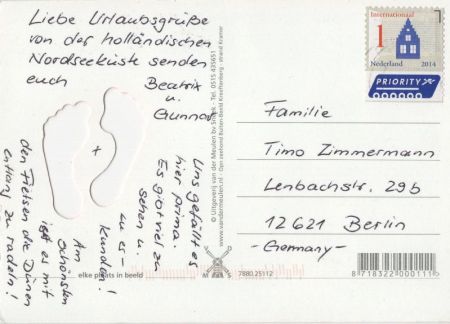 Liebe Urlaubsgrüße
von der holländischen
Nordseeküste senden
euch Beatrix
u.
Gunnar
+
Uns gefällt es
hier prima.
Es gibt viel zu
sehen u.
zu er-
kunden!
Am
schönsten
ist es mit
den Fietsen die Dünen
entlang zu radeln!
elke plaats in beeld
7880.25112
© Uitgeverij van der Meulen bv Sneek - Tel. 0515 435651
www.vandermeulen.nl
Internationaal
1
Nederland 2014
PRIORITY
Familie
Timo Zimmermann
Lenbachstr. 29b
12621 Berlin
-Germany-
8 718322 000111